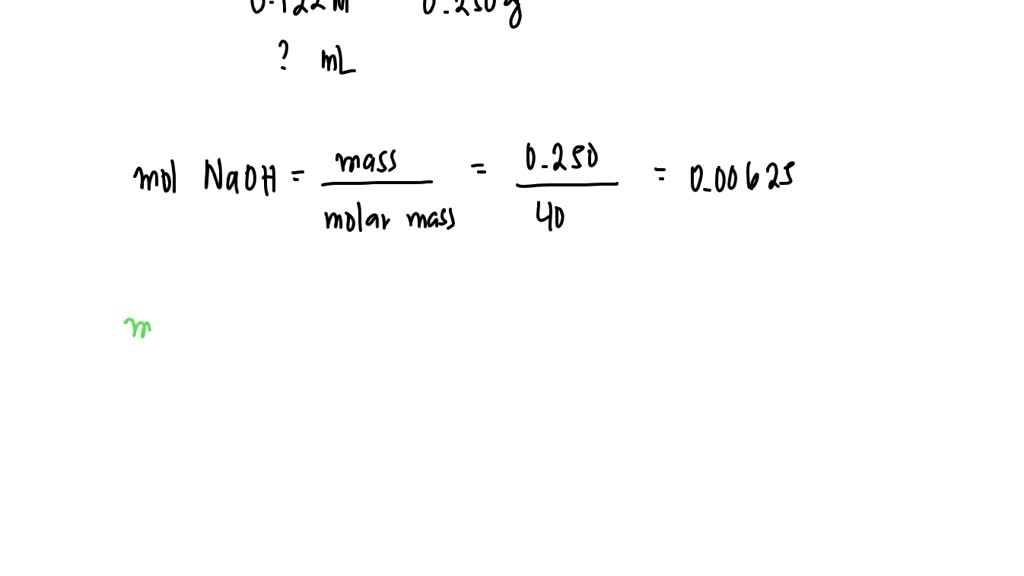 0.122M 0.250g
? mL
mol NaOH = mass / molar mass = 0.250 / 40 = 0.00625
m